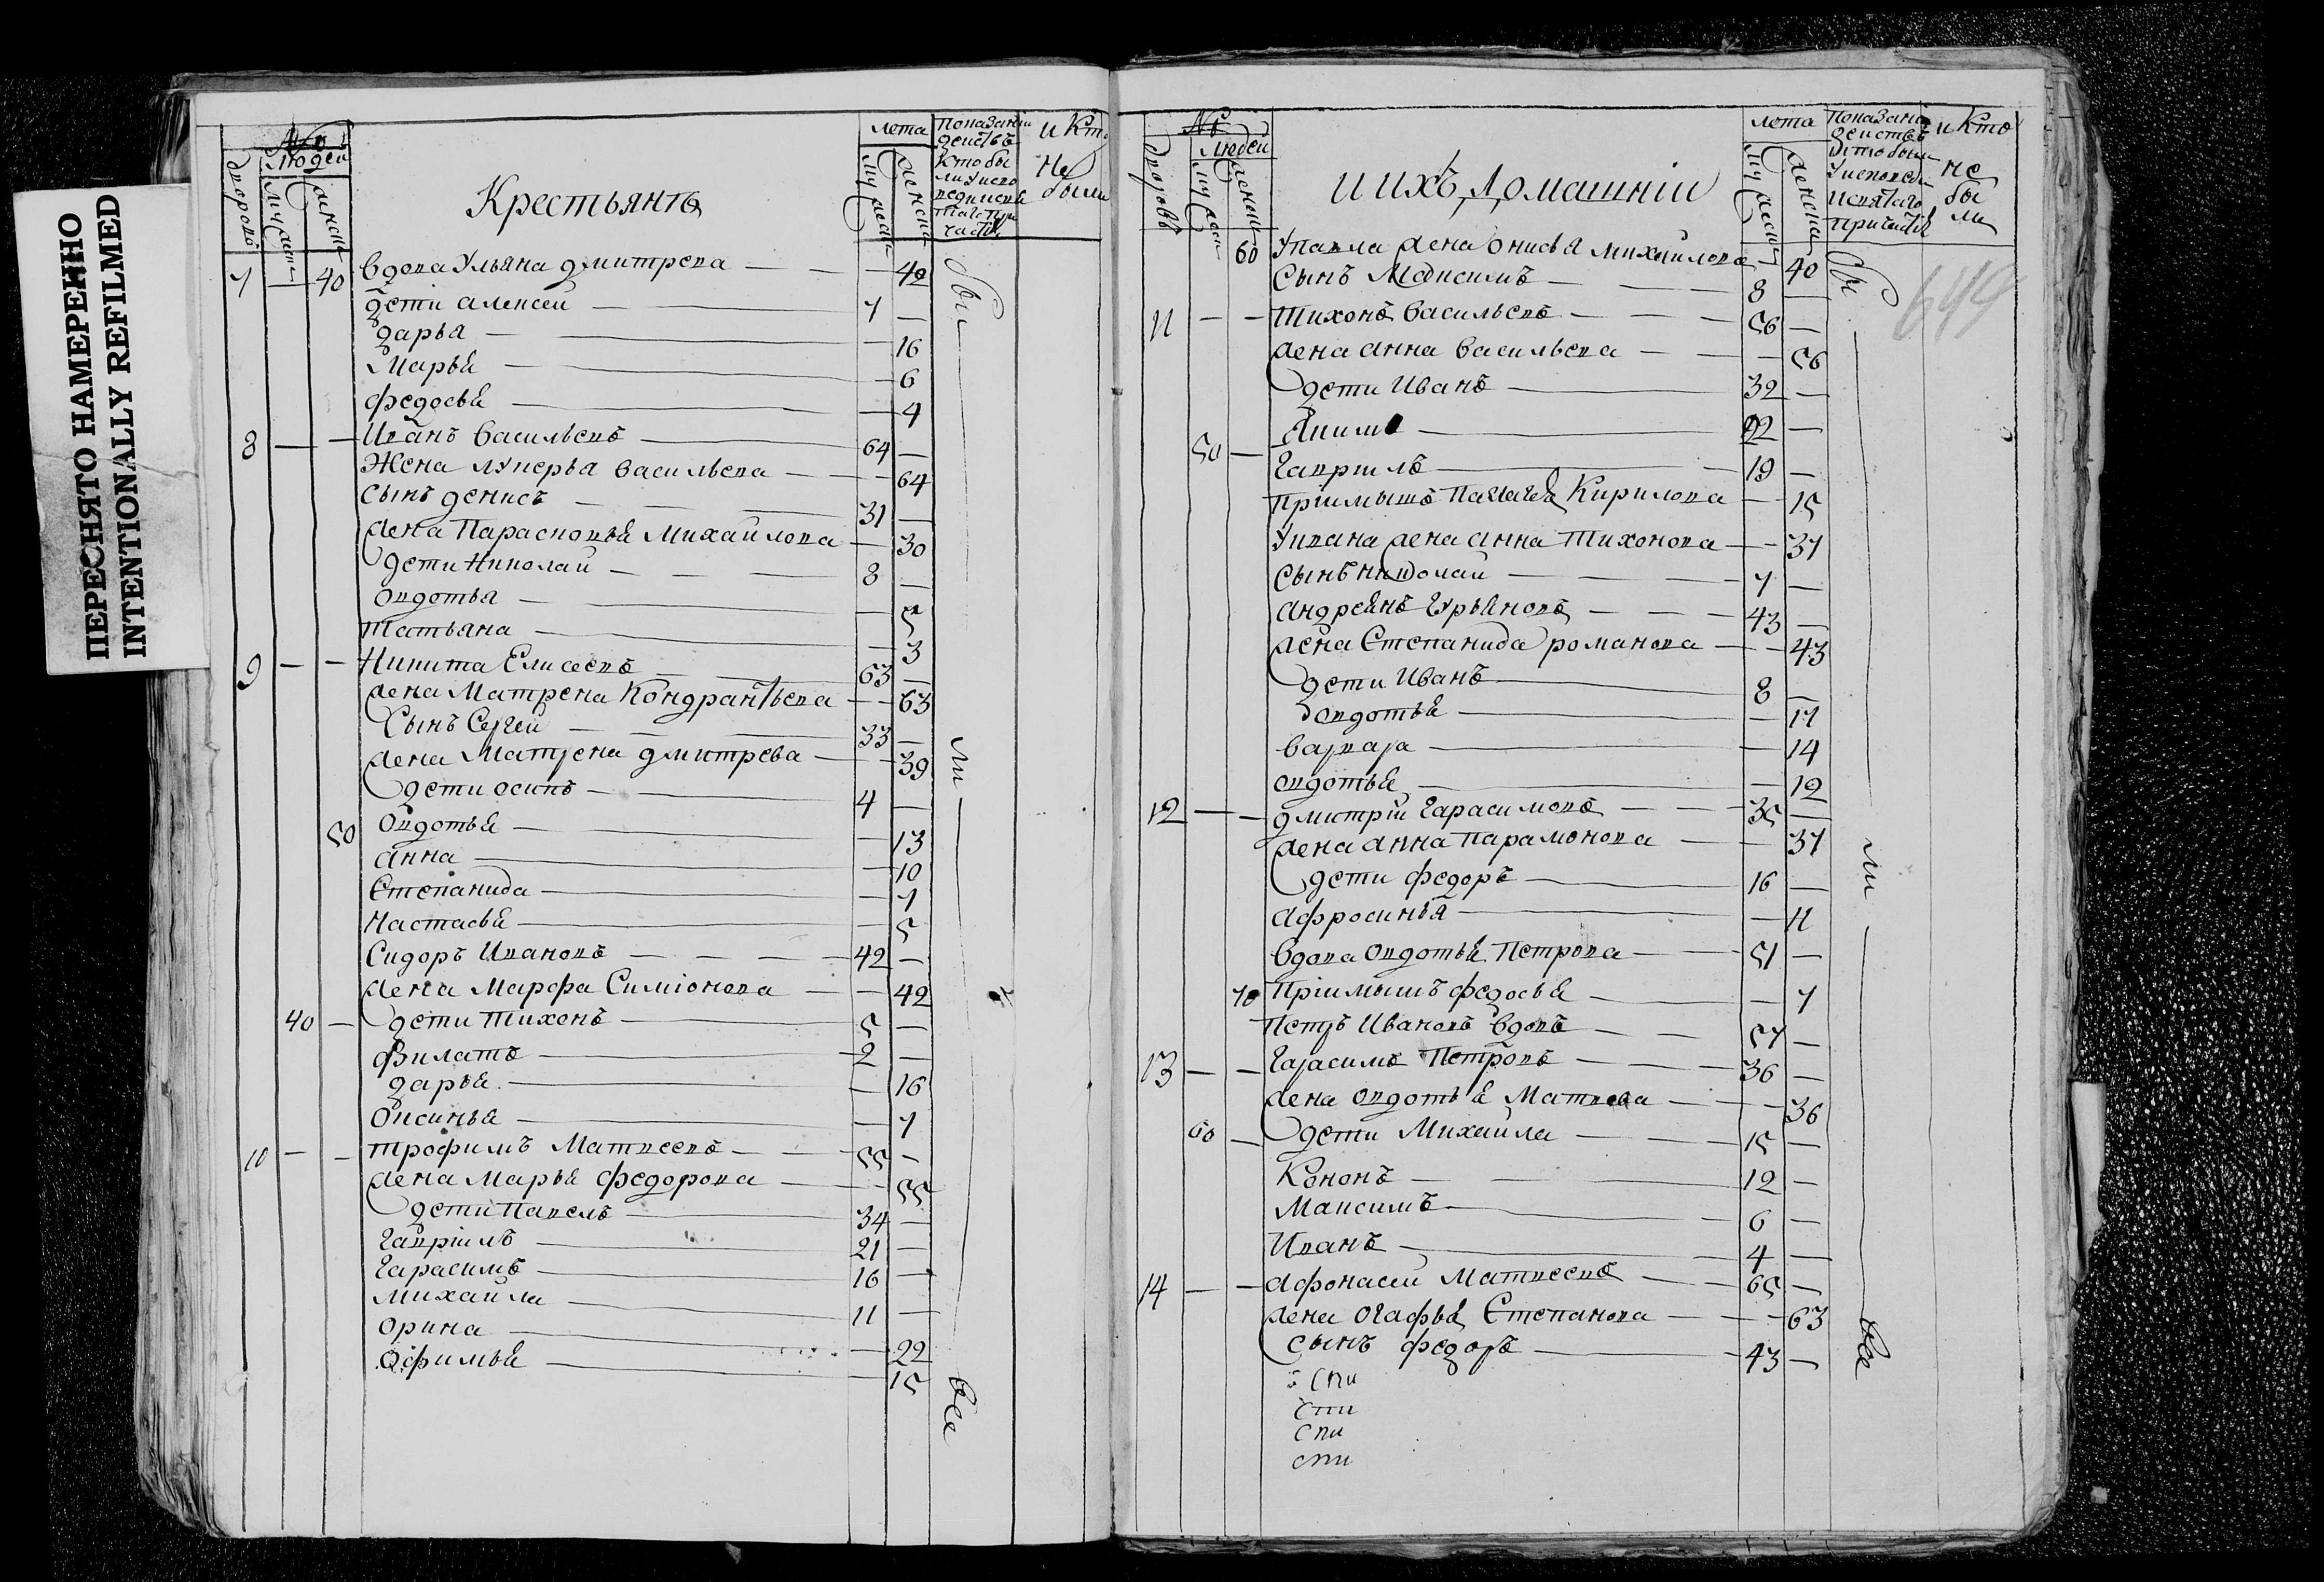 ПЕРЕСНЯТО НАМЕРЕННО
INTENTIONALLY REFILMED
№
людей
дворовъ
муж
женск
Крестьянѣ
лета
муж
женск
Показании
действъ
кто бы
ли у испо
и кто
не
были
7 — 40 вдова Ульяна дмитрева — 40
дети алексей — 7 —
дарья — 16
Марья — 6
федосья — 4
8 — — Иванъ васильевъ — 64 —
Жена лукерья васильева — 64
сынъ денисъ — 31 —
жена Парасковья Михайлова — 30
дети Николай — 8 —
овдотья — 5
татьяна — 3
9 — — Никита Елисеевъ — 63 —
жена Матрена Кондратьева — 63
Сынъ Сергей — 33 —
жена Матрена дмитрева — 39
дети осипъ — 4 —
50 овдотья — 13
анна — 10
Степанида — 7
Настасья — 5
Сидоръ Ивановъ — 42 —
жена Марфа Симионова — 42
40 — дети тихонъ — 5 —
филатъ — 2 —
дарья — 16
Оксинья — 7
10 — — трофимъ Матвеевъ — 55 —
жена Марья федорова — 55
дети Павелъ — 34 —
гавриилъ — 21 —
гарасимъ — 16 —
михаила — 11 —
орина — 22
офимья — 15
бы
ли
все
№
людей
дворовъ
муж
женск
и ихъ домашнии
лета
муж
женск
Показании
действъ
кто были
у исповеди
и святаго
причастия
и кто
не
бы
ли
649
60 У павла жена онисья михайлова — 40
Сынъ Максимъ — 8 —
11 — — тихонъ васильевъ — 56 —
жена анна васильева — 56
дети Иванъ — 32 —
Якимъ — 22 —
50 — гавриилъ — 19 —
Приимышъ Пелагея Кирилова — 15
У ивана жена анна тихонова — 37
Сынъ николай — 7 —
андреянъ гурьяновъ — 43 —
жена Степанида романова — 43
дети Иванъ — 8 —
овдотья — 17
варвара — 14
овдотья — 12
12 — — дмитрий гарасимовъ — 35 —
жена анна парамонова — 37
дети федоръ — 16 —
афросинья — 11
вдова овдотья Петрова — 51 —
70 приимышъ федосья — 7
Петръ Ивановъ вдовъ — 57 —
13 — — гарасимъ Петровъ — 36 —
жена овдотья Матвева — 36
60 — дети Михаила — 15 —
Кононъ — 12 —
Максимъ — 6 —
Иванъ — 4 —
14 — — афонасей Матвеевъ — 65 —
жена огафья Степанова — 63
сынъ федоръ — 43 —
спи
спи
спи
спи
бы
ли
все